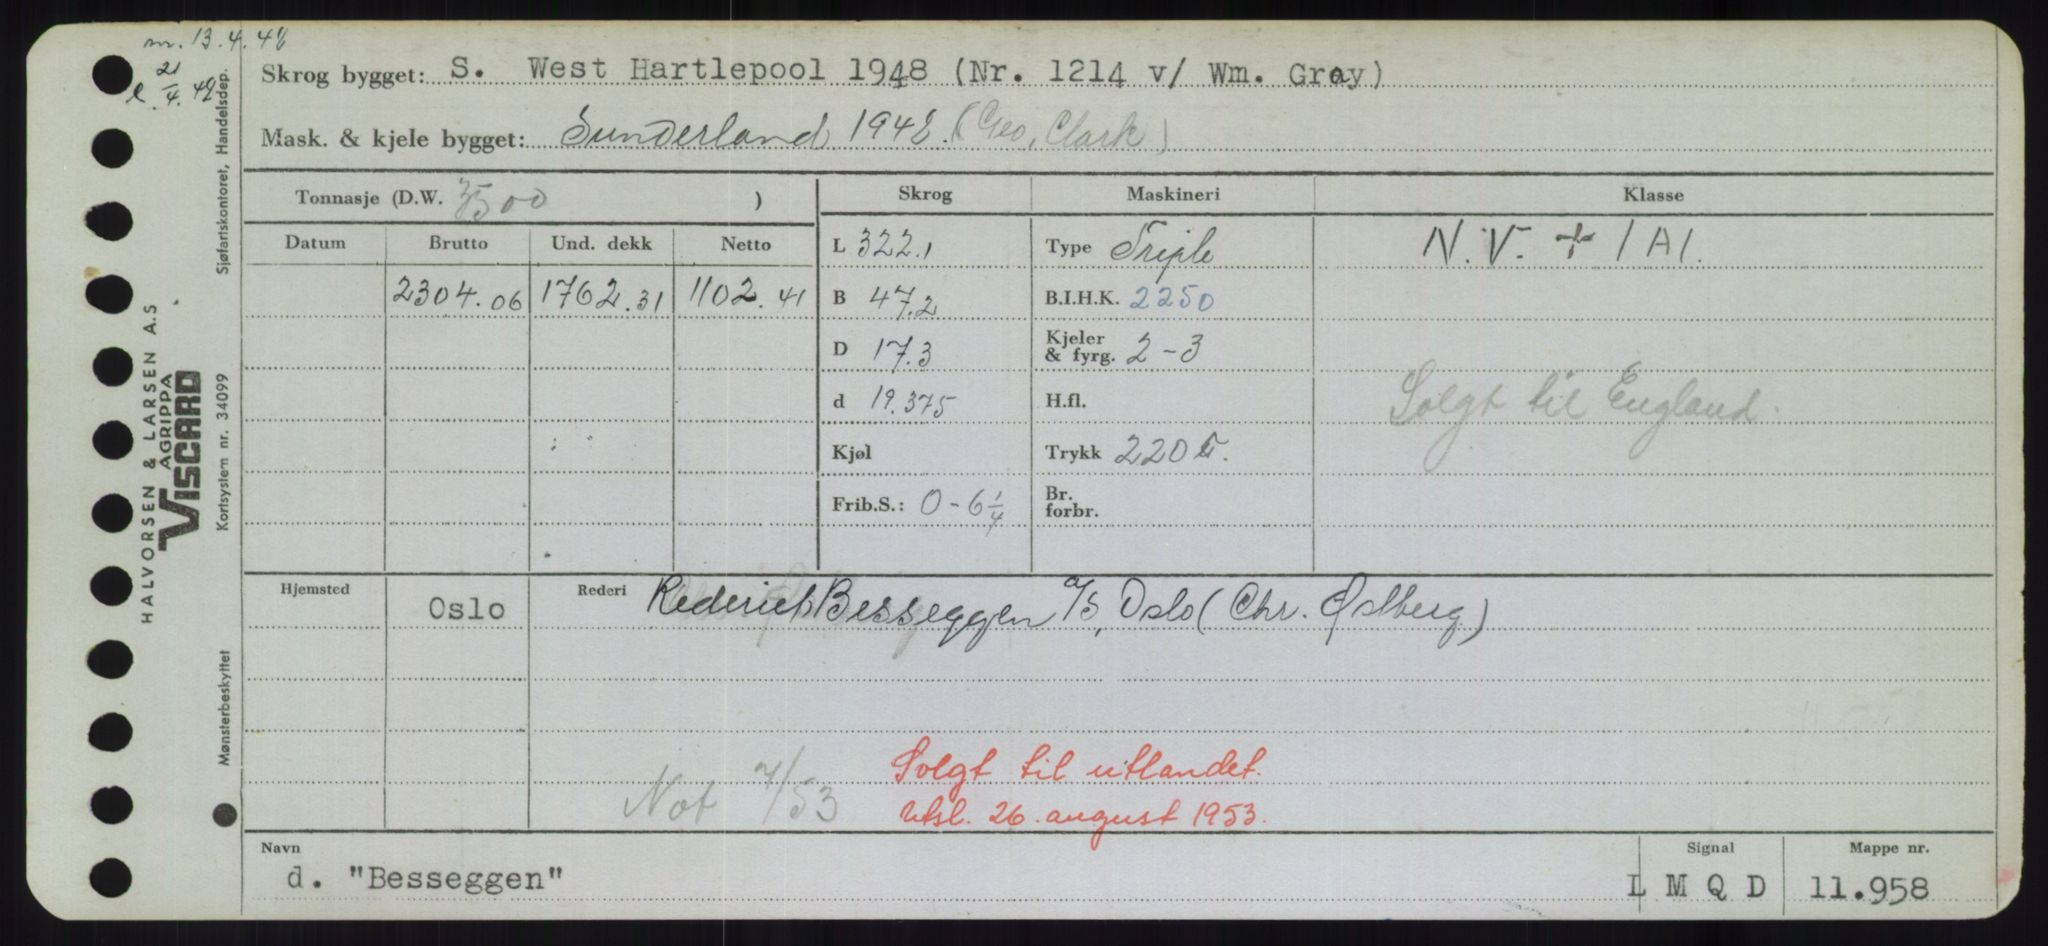 m. 13.4.48
e. 21/4.48
Skrog bygget: S. West Hartlepool 1948 (Nr. 1214 v/ Wm. Gray)
Mask. & kjele bygget: Sunderland 1948. (Geo. Clark)
Tonnasje (D.W. 3500 )
Skrog Maskineri Klasse
Datum Brutto Und. dekk Netto
L 322.1 Type Triple N.V. + 1A1.
2304.06 1762.31 1102.41 B 47.2 B.I.H.K. 2250
D 17.3 Kjeler & fyrg. 2-3
d 19.375 H.fl. Solgt til England.
Kjøl Trykk 220
Frib.S.: 0-6 1/4 Br. forbr.
Hjemsted Oslo Rederi Rederiet Besseggen A/S, Oslo (Chr. Østberg)
Solgt til utlandet.
Not 7/53 Utsl. 26. august 1953.
Navn Signal Mappe nr.
d. "Besseggen" L M Q D 11.958
HALVORSEN & LARSEN A.S
AGRIPPA
VISCARD
Sjøfartskontoret, Handelsdep.
Kortsystem nr. 34099
Mønsterbeskyttet